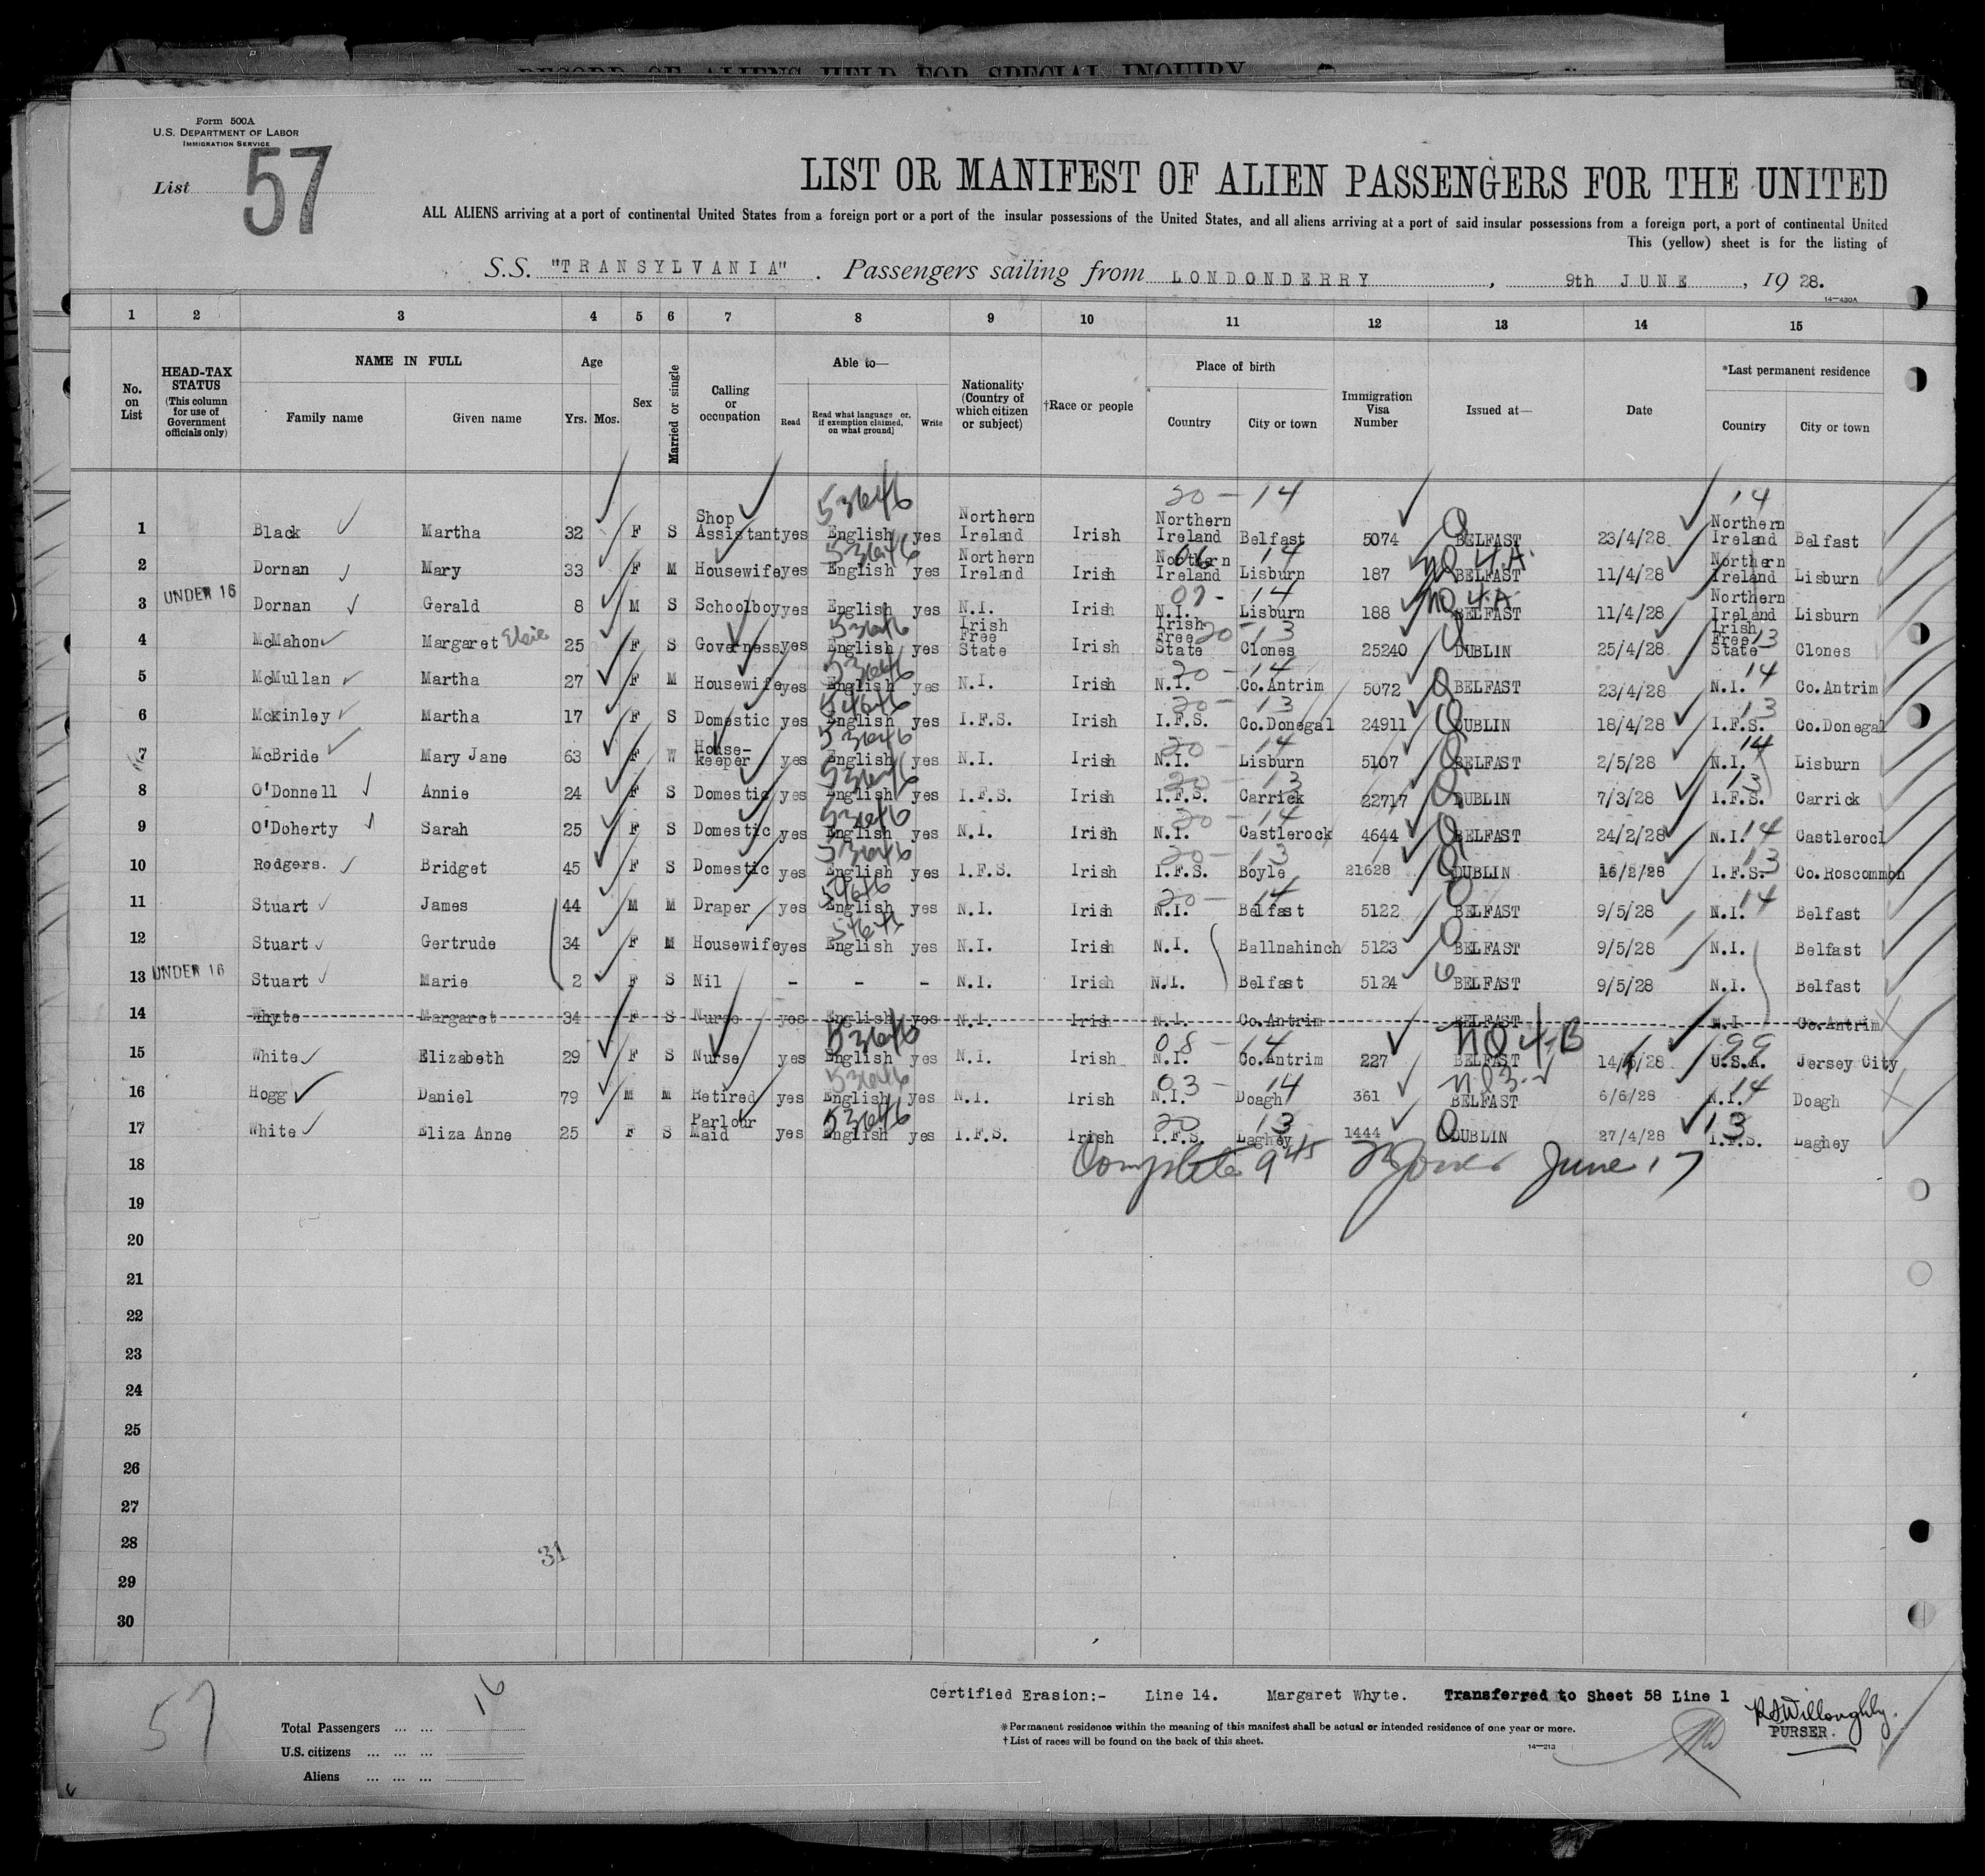 RECORD OF ALIENS HELD FOR SPECIAL INQUIRY
Form 500A
U.S. DEPARTMENT OF LABOR
IMMIGRATION SERVICE
List 57
LIST OR MANIFEST OF ALIEN PASSENGERS FOR THE UNITED
ALL ALIENS arriving at a port of continental United States from a foreign port or a port of the insular possessions of the United States, and all aliens arriving at a port of said insular possessions from a foreign port, a port of continental United
This (yellow) sheet is for the listing of
S.S. "TRANSYLVANIA". Passengers sailing from LONDONDERRY, 9th JUNE, 19 28.
14—430A
1 2 3 4 5 6 7 8 9 10 11 12 13 14 15
No. on List HEAD-TAX STATUS (This column for use of Government officials only) NAME IN FULL Family name Given name Age Yrs. Mos. Sex Married or single Calling or occupation Able to— Read Read what language [or, if exemption claimed, on what ground] Write Nationality (Country of which citizen or subject) †Race or people Place of birth Country City or town Immigration Visa Number Issued at— Date *Last permanent residence Country City or town
53646 20 - 14 14
1 Black Martha 32 F S Shop Assistant yes English yes Northern Ireland Irish Northern Ireland Belfast 5074 BELFAST 23/4/28 Northern Ireland Belfast
53646 06 14 NQ 4A
2 Dornan Mary 33 F M Housewife yes English yes Northern Ireland Irish Northern Ireland Lisburn 187 BELFAST 11/4/28 Northern Ireland Lisburn
07- 14 NQ 4A
3 UNDER 16 Dornan Gerald 8 M S Schoolboy yes English yes N.I. Irish N.I. Lisburn 188 BELFAST 11/4/28 Northern Ireland Lisburn
53646 20 - 13 13
4 McMahon Margaret Elsie 25 F S Governess yes English yes Irish Free State Irish Irish Free State Clones 25240 DUBLIN 25/4/28 Irish Free State Clones
53646 20 - 14 14
5 McMullan Martha 27 F M Housewife yes English yes N.I. Irish N.I. Co.Antrim 5072 BELFAST 23/4/28 N.I. Co.Antrim
54646 20 - 13 13
6 Mckinley Martha 17 F S Domestic yes English yes I.F.S. Irish I.F.S. Co.Donegal 24911 DUBLIN 18/4/28 I.F.S. Co.Donegal
53646 20 - 14 14
7 McBride Mary Jane 63 F W House-keeper yes English yes N.I. Irish N.I. Lisburn 5107 BELFAST 2/5/28 N.I. Lisburn
53646 20 - 13 13
8 O'Donnell Annie 24 F S Domestic yes English yes I.F.S. Irish I.F.S. Carrick 22717 DUBLIN 7/3/28 I.F.S. Carrick
53646 20 - 14 14
9 O'Doherty Sarah 25 F S Domestic yes English yes N.I. Irish N.I. Castlerock 4644 BELFAST 24/2/28 N.I. Castlerocl
53646 20 - 13 13
10 Rodgers. Bridget 45 F S Domestic yes English yes I.F.S. Irish I.F.S. Boyle 21628 DUBLIN 16/2/28 I.F.S. Co.Roscommon
54646 20 - 14 14
11 Stuart James 44 M M Draper yes English yes N.I. Irish N.I. Belfast 5122 BELFAST 9/5/28 N.I. Belfast
54646
12 Stuart Gertrude 34 F M Housewife yes English yes N.I. Irish N.I. Ballnahinch 5123 BELFAST 9/5/28 N.I. Belfast
13 UNDER 16 Stuart Marie 2 F S Nil - - - N.I. Irish N.I. Belfast 5124 BELFAST 9/5/28 N.I. Belfast
14 Whyte Margaret 34 F S Nurse yes English yes N.I. Irish N.I. Co.Antrim BELFAST N.I. Co.Antrim
53646 08 - 14 NQ 4-B 99
15 White Elizabeth 29 F S Nurse yes English yes N.I. Irish N.I. Co.Antrim 227 BELFAST U.S.A. Jersey City
53646 03 - 14 14
16 Hogg Daniel 79 M M Retired yes English yes N.I. Irish N.I. Doagh 361 BELFAST 6/6/28 N.I. Doagh
53646 20 13 13
17 White Eliza Anne 25 F S Parlour Maid yes English yes I.F.S. Irish I.F.S. Laghey 1444 DUBLIN 27/4/28 I.F.S. Laghey
18 Complete 9 45 June 17
19
20
21
22
23
24
25
26
27
28
31
29
30
Certified Erasion:- Line 14. Margaret Whyte. Transferred to Sheet 58 Line 1
57
Total Passengers ... ... 16
U.S. citizens ... ... ...
Aliens ... ... ...
*Permanent residence within the meaning of this manifest shall be actual or intended residence of one year or more.
†List of races will be found on the back of this sheet.
14—213
Willoughby.
PURSER.